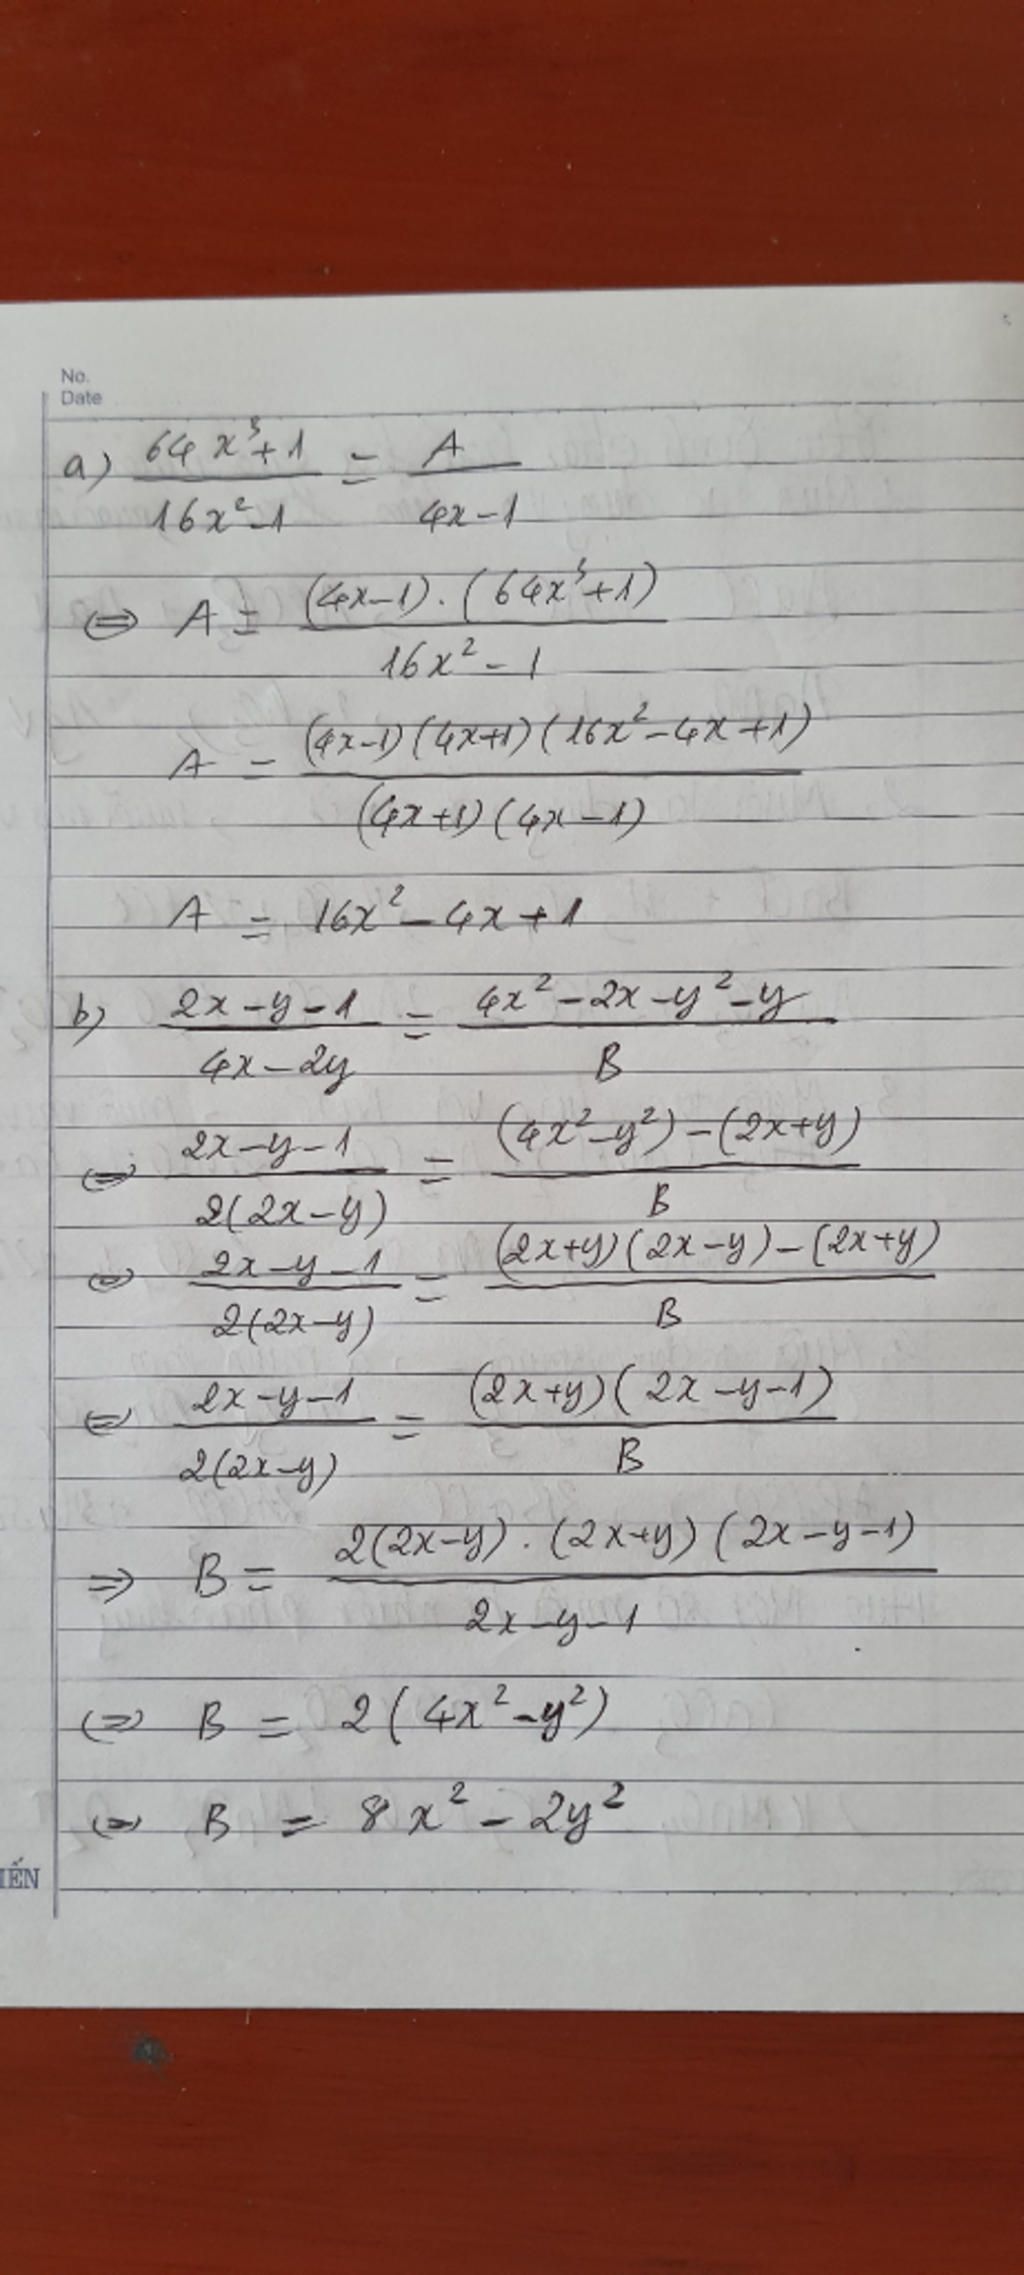 No.
Date
a) (64x³+1)/(16x²-1) = A/(4x-1)
⇔ A = ((4x-1).(64x³+1))/(16x²-1)
A = ((4x-1)(4x+1)(16x²-4x+1))/((4x+1)(4x-1))
A = 16x²-4x+1
b) (2x-y-1)/(4x-2y) = (4x²-2x-y²-y)/B
⇔ (2x-y-1)/(2(2x-y)) = ((4x²-y²)-(2x+y))/B
⇔ (2x-y-1)/(2(2x-y)) = ((2x+y)(2x-y)-(2x+y))/B
⇔ (2x-y-1)/(2(2x-y)) = ((2x+y)(2x-y-1))/B
⇒ B = (2(2x-y).(2x+y)(2x-y-1))/(2x-y-1)
⇔ B = 2(4x²-y²)
⇔ B = 8x²-2y²
IẾN